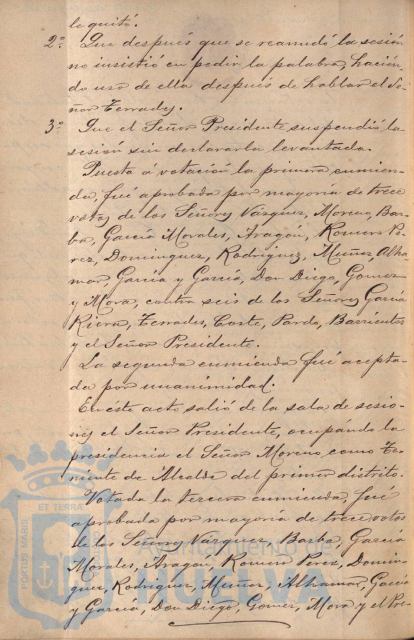 le quitó.
2º Que después que se reanudó la sesión
no insistió en pedir la palabra, hacién
do uso de ella después de hablar el Se
ñor Terrades.
3º Que el Señor Presidente suspendió la
sesión sin declararla levantada.
Puesta á votación la primera enmien-
da, fué aprobada por mayoría de trece
votos de los Señores Vázquez, Moreno, Bar-
ba, García Morales, Aragón, Romero Pe-
rez, Dominguez, Rodriguez, Muñoz, Alha-
mar, García y García, Don Diego, Gomez
y Mora, contra seis de los Señores García
Riera, Terrades, Coste, Pardo, Barrientos
y el Señor Presidente.
La segunda enmienda fué acepta-
da por unanimidad.
En éste acto salió de la sala de sesio-
nes el Señor Presidente, ocupando la
presidencia el Señor Moreno, como Te-
niente de Alcalde del primer distrito.
Votada la tercera enmienda, fué
aprobada por mayoría de trece votos
de los Señores Vázquez, Barba, García
Morales, Aragón, Romero Perez, Domin-
guez, Rodriguez, Muñoz, Alhamar, García
y García, Don Diego, Gomez, Mora y el Pre-
PORTUS MARIS
ET TERRAE
Ayuntamiento de
HUELVA